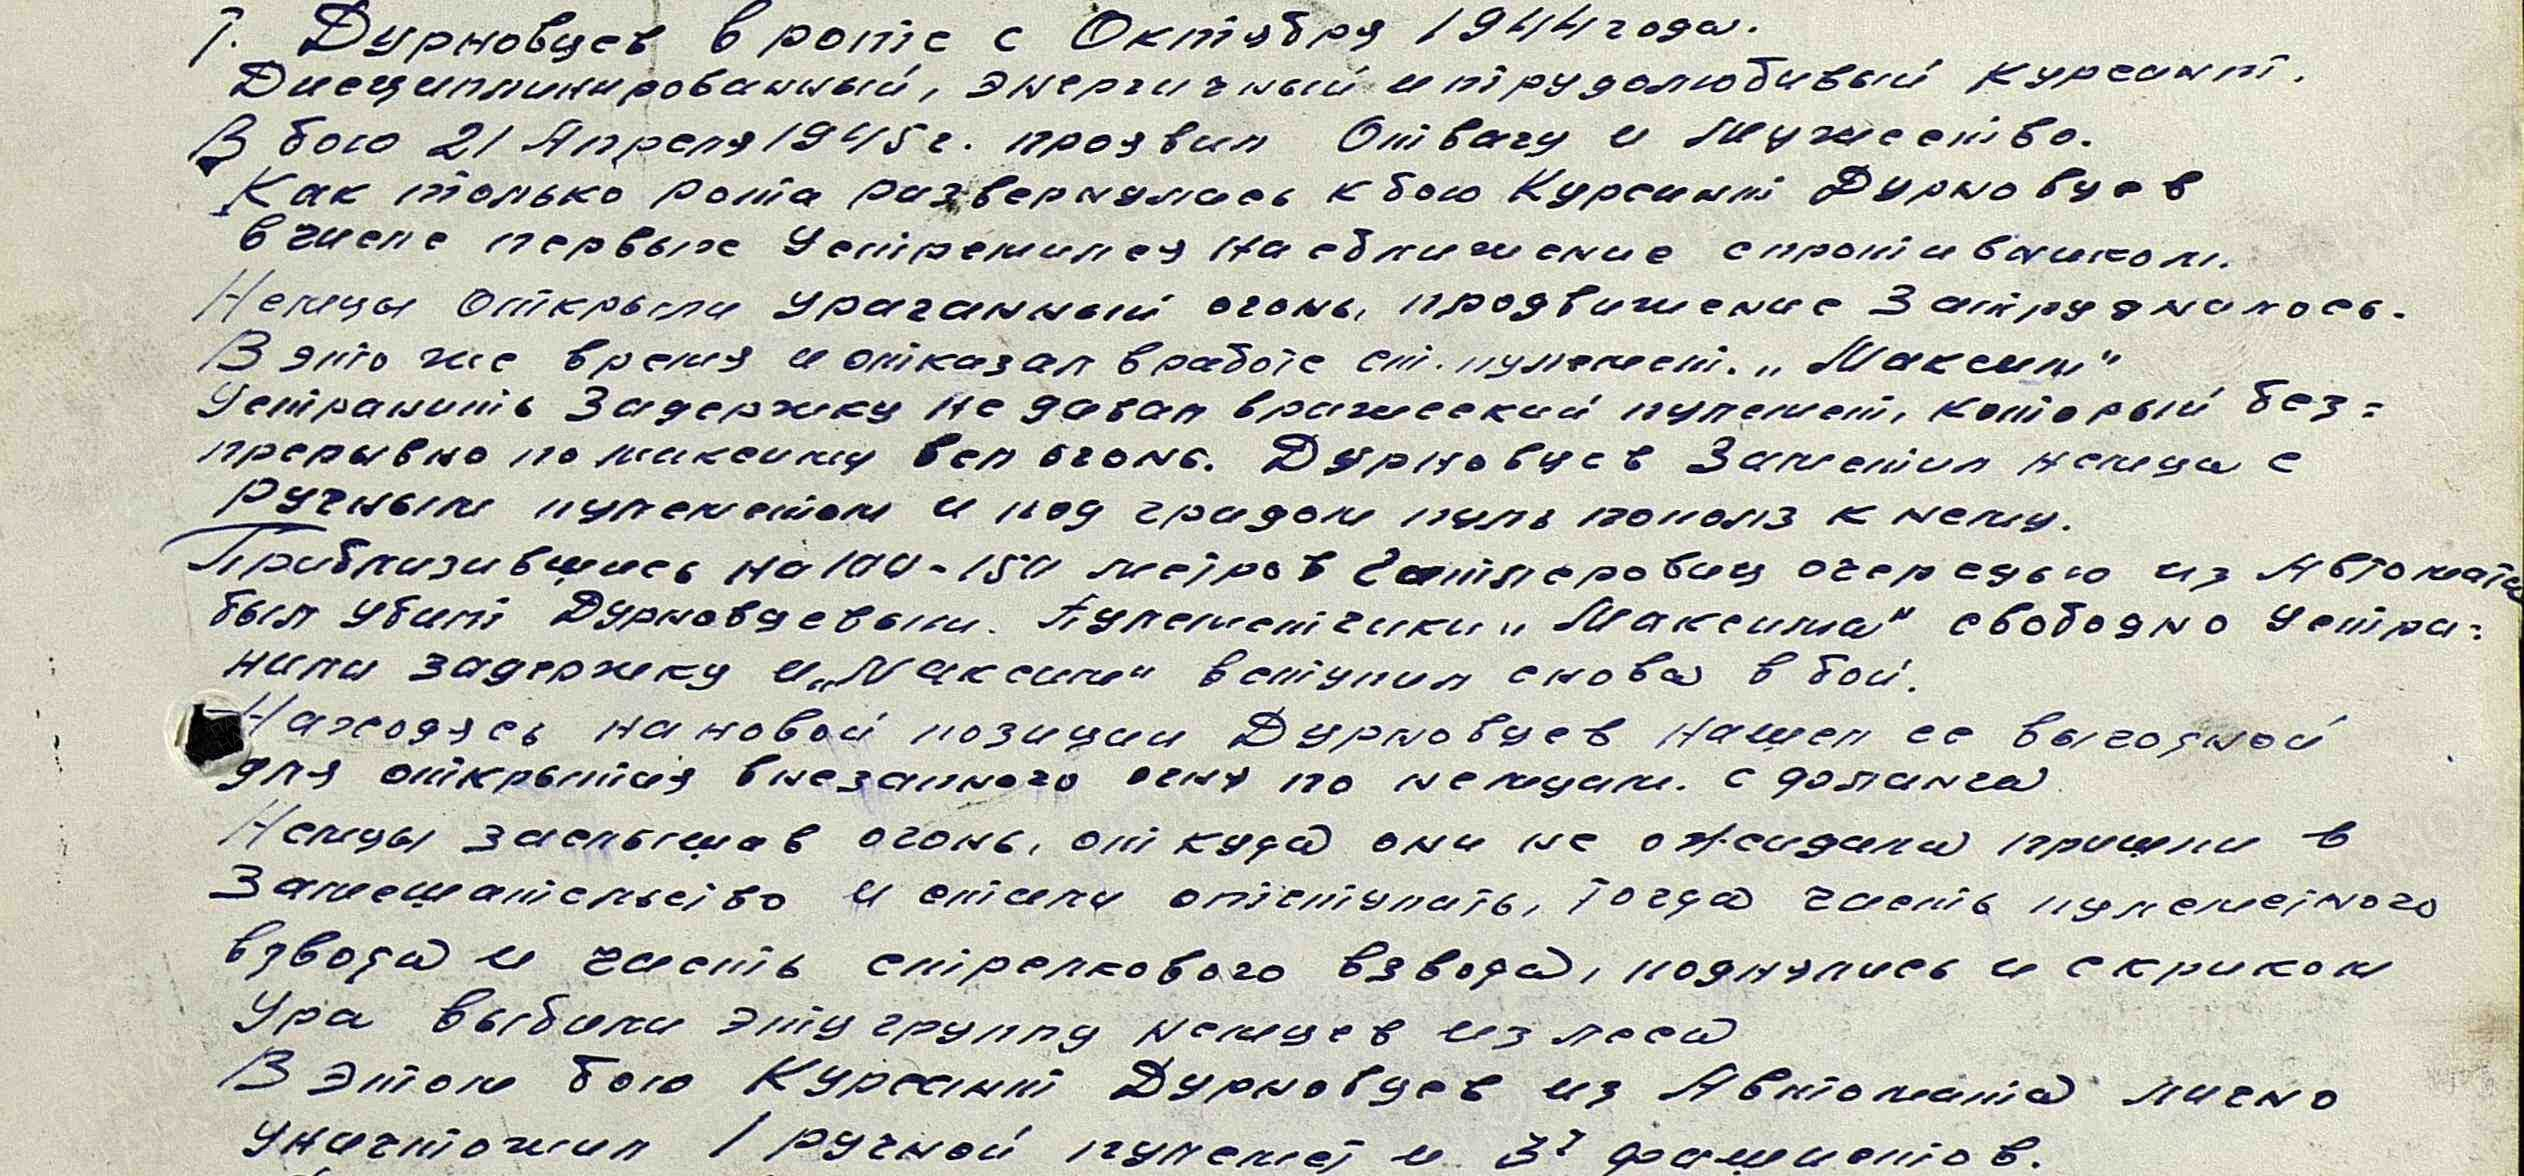 Т. Дурновцев в роте с Октября 1944 года.
Дисциплинированный, энергичный и трудолюбивый курсант.
В бою 21 Апреля 1945 г. проявил Отвагу и Мужество.
Как только рота развернулась к бою Курсант Дурновцев
в числе первых Устремился на сближение с противником.
Немцы Открыли ураганный огонь, продвижение Затруднялось.
В это же время и отказал в работе ст. пулемет. „Максим"
Устранить Задержку не давал вражеский пулемет, который без=
прерывно по максиму вел огонь. Дурновцев Заметил немца с
ручным пулеметом и под градом пуль пополз к нему.
Приблизившись на 100-150 метров Гитлеровец очередью из Автомата
был Убит Дурновцевым. Пулеметчики „Максима" свободно Устра=
нили задержку и „Максим" вступил снова в бой.
Находясь на новой позиции Дурновцев нашел ее выгодной
для открытия внезапного огня по немцам. с фланга
Немцы заслышав огонь, откуда они не ожидали пришли в
Замешательство и стали отступать, тогда часть пулеметного
взвода и часть стрелкового взвода, поднялись и с криком
Ура выбили эту группу немцев из леса
В этом бою Курсант Дурновцев из Автомата лично
уничтожил 1 ручной пулемет и 3х фашистов.